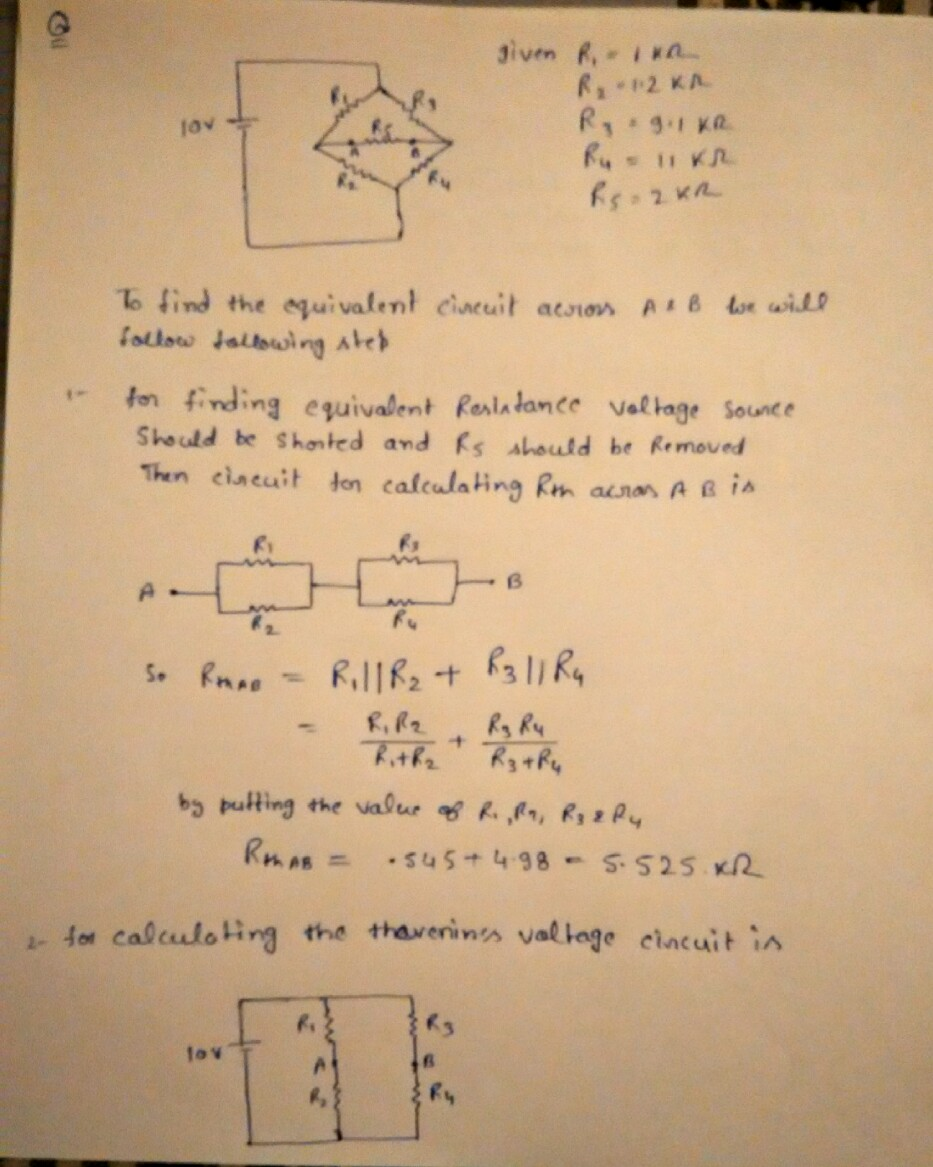 Q
given R1 = 1 KΩ
R2 = 1.2 KΩ
R3 = 9.1 KΩ
R4 = 11 KΩ
R5 = 2 KΩ
10V
R1 R3
R5
A B
R2 R4
To find the equivalent circuit across A & B we will
follow following step
1- for finding equivalent Resistance voltage source
Should be shorted and R5 should be Removed
Then circuit for calculating Rth across A B is
R1 R3
A B
R2 R4
So RthAB = R1||R2 + R3||R4
= R1R2/R1+R2 + R3R4/R3+R4
by putting the value of R1, R2, R3 & R4
RthAB = .545 + 4.98 = 5.525 KΩ
2- for calculating the thevenines voltage circuit is
R1 R3
10V
A B
R2 R4